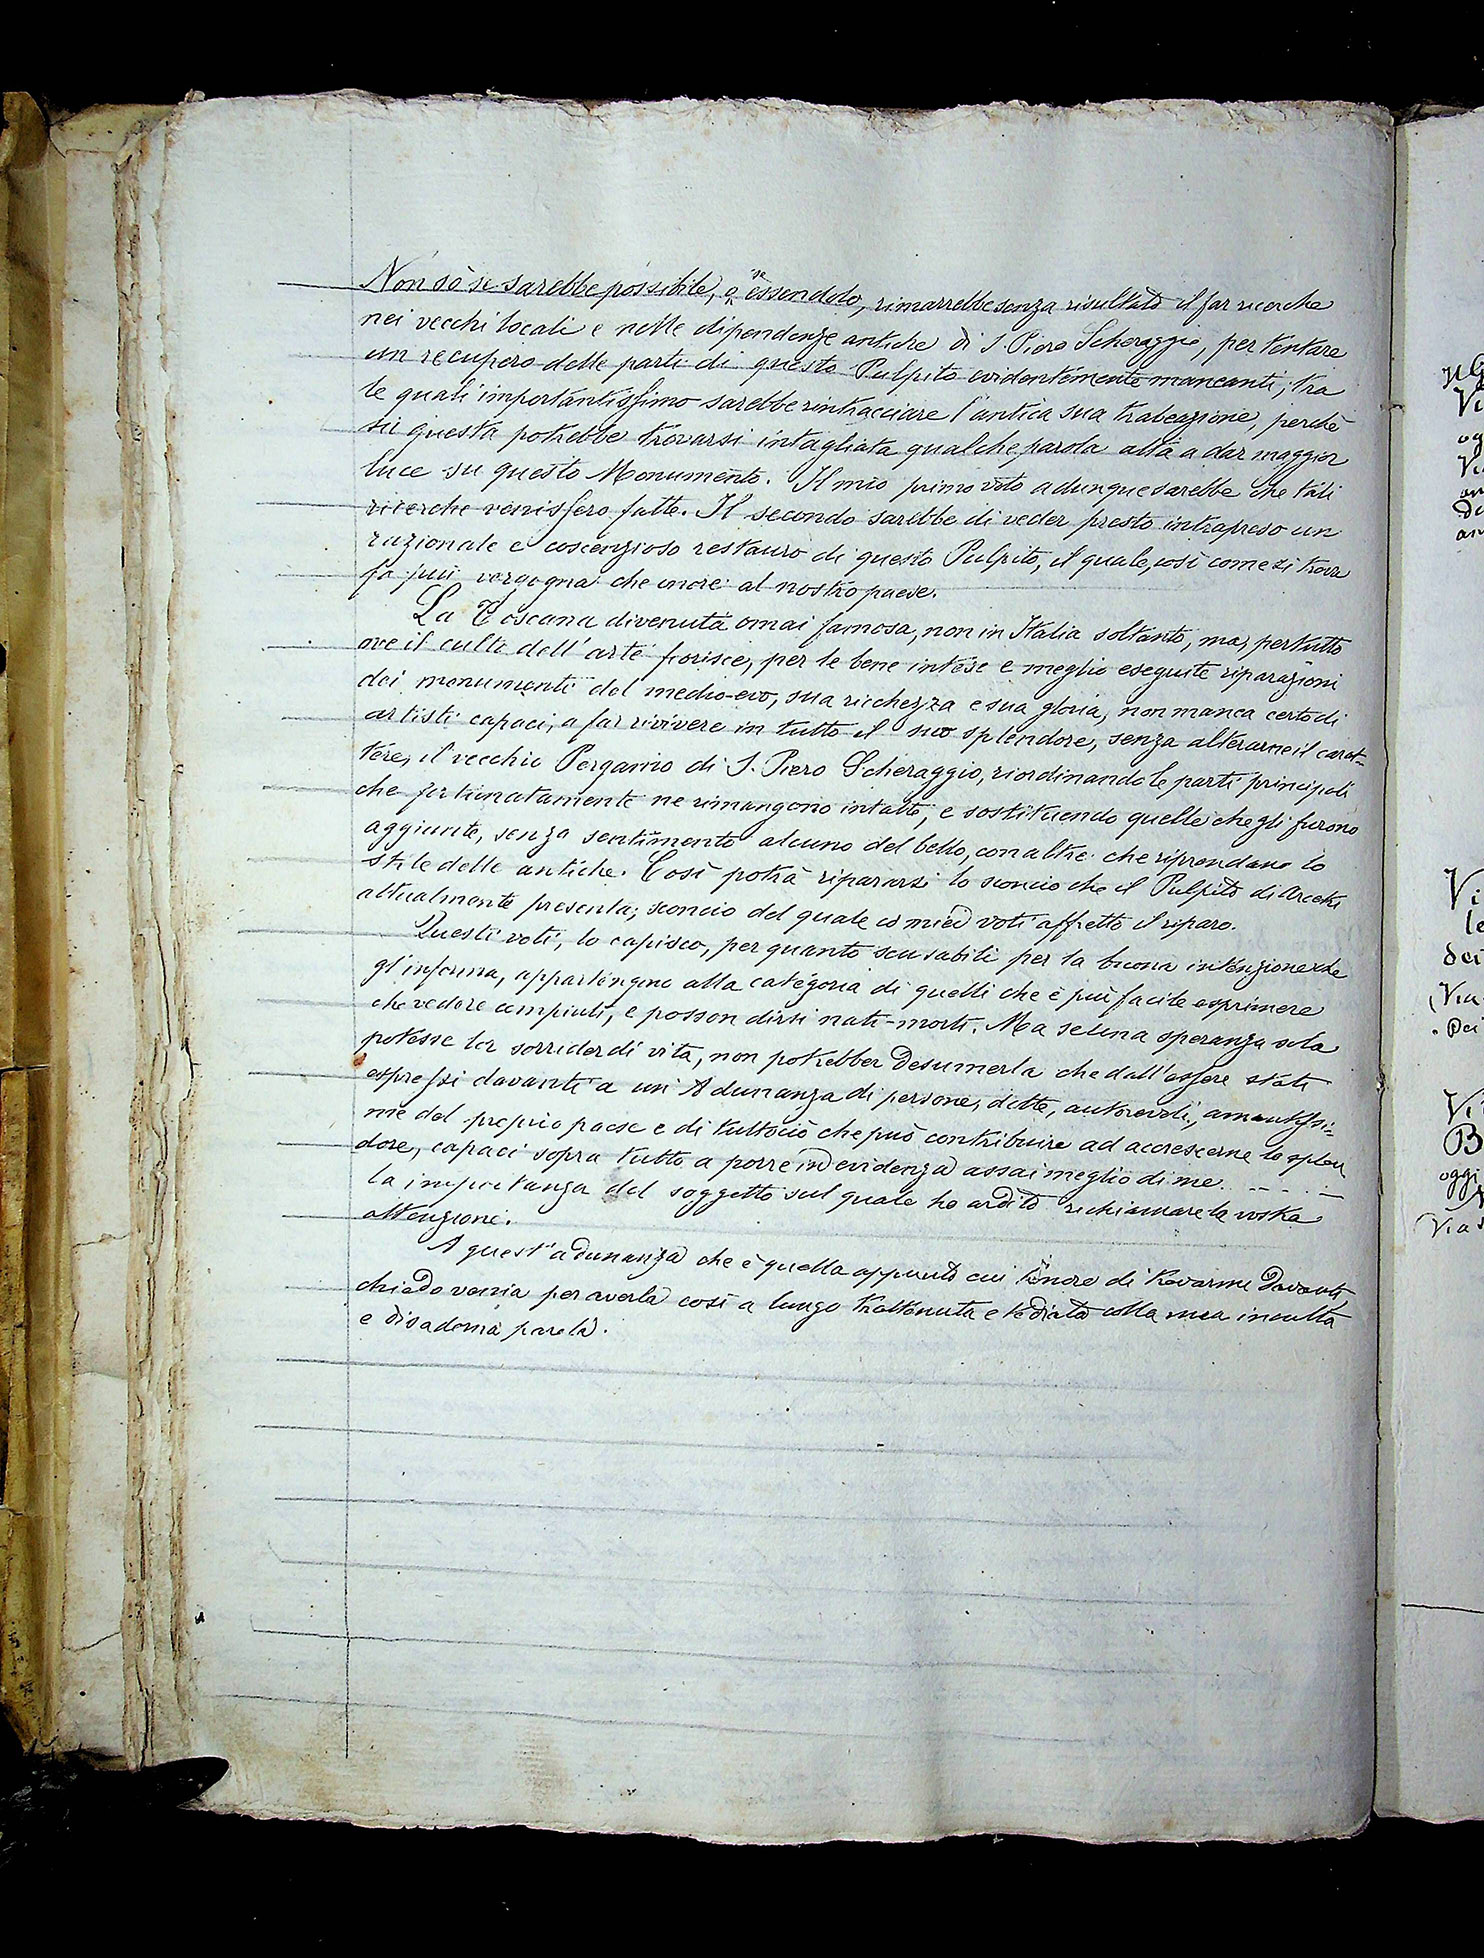 Non sò se sarebbe possibile, o se essendolo, rimarrebbe senza risultato il far ricerche
nei vecchi locali e nelle dipendenze antiche di S. Piero Scheraggio, per tentare
un recupero delle parti di questo Pulpito evidentemente mancanti; tra
le quali importantissimo sarebbe rintracciare l'antica sua trabeazione, perchè
su questa potrebbe trovarsi intagliata qualche parola atta a dar maggior
luce su questo Monumento. Il mio primo voto adunque sarebbe che tali
ricerche venissero fatte. Il secondo sarebbe di veder presto intrapreso un
razionale e coscenzioso restauro di questo Pulpito, il quale, così come si trova
fa più vergogna che onore al nostro paese.
La Toscana divenuta omai famosa, non in Italia soltanto, ma, pertutto
ove il culto dell'arte fiorisce, per le bene intese e meglio eseguite riparazioni
dei monumenti del medio-evo, sua ricchezza e sua gloria, non manca certo di
artisti capaci, a far rivivere in tutto il suo splendore, senza alterarne il carat-
tere, il vecchio Pergamo di S. Piero Scheraggio, riordinando le parti principali
che fortunatamente ne rimangono intatte, e sostituendo quelle che gli furono
aggiunte, senza sentimento alcuno del bello, con altre che riprendano lo
stile delle antiche. Così potrà ripararsi lo sconcio che il Pulpito di Arcetri
attualmente presenta; sconcio del quale co' miei voti affretto il riparo.
Questi voti, lo capisco, per quanto scusabili per la buona intenzione che
gl'informa, appartengono alla categoria di quelli che è più facile esprimere
che vedere compiuti, e posson dirsi nati-morti. Ma se una speranza sola
potesse lor sorrider di vita, non potrebber desumerla che dall'essere stati
espressi davanti a un' Adunanza di persone, dotte, autorevoli, amantissi-
me del proprio paese e di tuttociò che può contribuire ad accrescerne lo splen
dore, capaci sopra tutto a porre in evidenza assai meglio di me
la importanza del soggetto sul quale ho ardito richiamare la vostra
attenzione.
A quest'adunanza che è quella appunto cui l'onore di trovarmi davanti,
chiedo venia per averla così a lungo trattenuta e tediata colla mia incolta
e disadorna parola.
Vi
le
dei
(Via
Vi
B
oggi
(Via